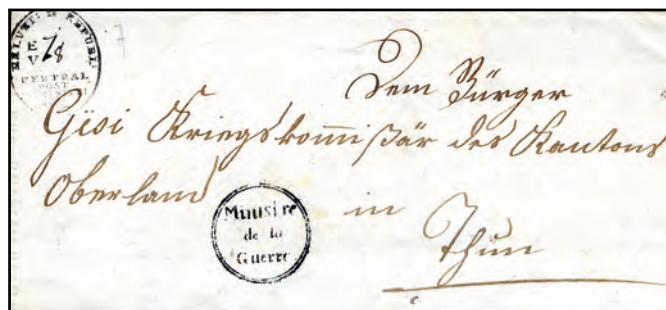 HELVET: REPUBL:
E
V 78
CENTRAL
POST
Dem Bürger
Gisi Kriegskommißär des Kantons
Oberland
in
Thun
Ministre
de la
Guerre